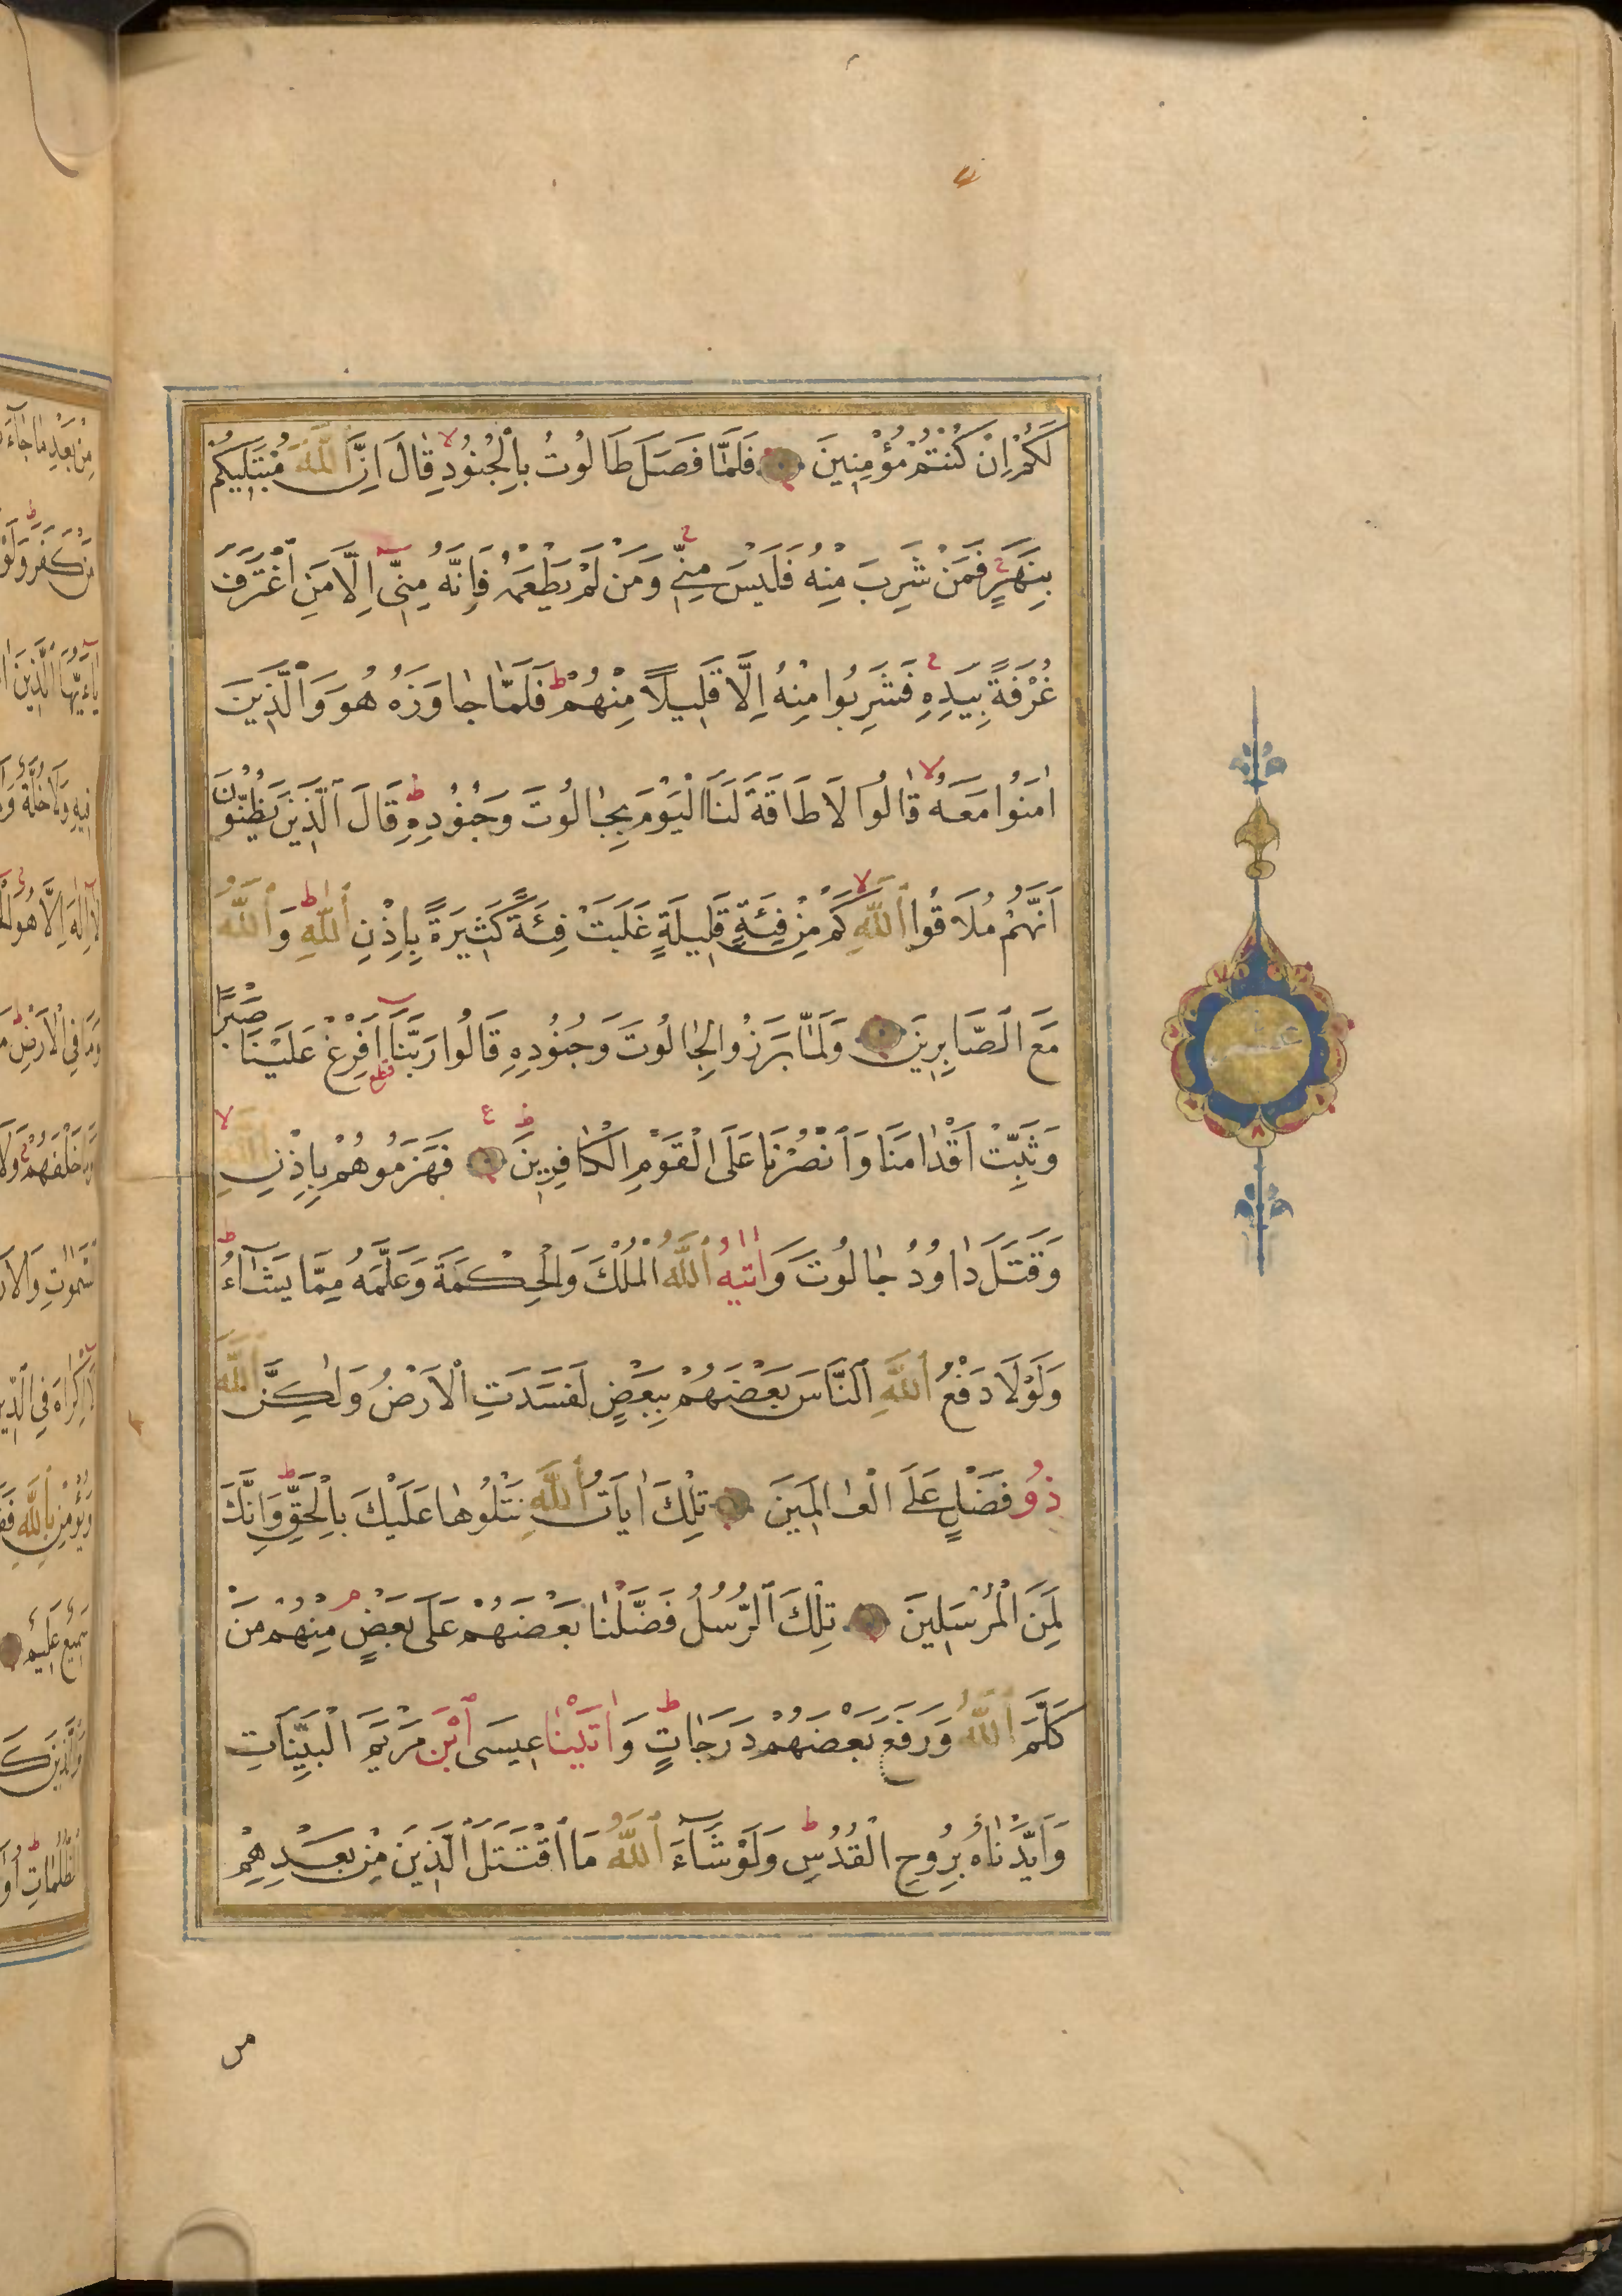 لَكُمْ اِنْ كُنْتُمْ مُؤْمِنِينَ فَلَمَّا فَصَلَ طَالُوتُ بِالْجُنُودِ قَالَ اِنَّ اللّٰهَ مُبْتَلِيكُمْ
بِنَهَرٍ فَمَنْ شَرِبَ مِنْهُ فَلَيْسَ مِنِّي وَمَنْ لَمْ يَطْعَمْهُ فَاِنَّهُ مِنِّي اِلَّا مَنِ اغْتَرَفَ
غُرْفَةً بِيَدِهِ فَشَرِبُوا مِنْهُ اِلَّا قَلِيلًا مِنْهُمْ فَلَمَّا جَاوَزَهُ هُوَ وَالَّذِينَ
اٰمَنُوا مَعَهُ قَالُوا لَا طَاقَةَ لَنَا الْيَوْمَ بِجَالُوتَ وَجُنُودِهِ قَالَ الَّذِينَ يَظُنُّونَ
اَنَّهُمْ مُلَاقُوا اللّٰهِ كَمْ مِنْ فِئَةٍ قَلِيلَةٍ غَلَبَتْ فِئَةً كَثِيرَةً بِاِذْنِ اللّٰهِ وَاللّٰهُ
مَعَ الصَّابِرِينَ وَلَمَّا بَرَزُوا لِجَالُوتَ وَجُنُودِهِ قَالُوا رَبَّنَا اَفْرِغْ عَلَيْنَا صَبْرًا
وَثَبِّتْ اَقْدَامَنَا وَانْصُرْنَا عَلَى الْقَوْمِ الْكَافِرِينَ فَهَزَمُوهُمْ بِاِذْنِ اللّٰهِ
وَقَتَلَ دَاوُدُ جَالُوتَ وَاٰتٰيهُ اللّٰهُ الْمُلْكَ وَالْحِكْمَةَ وَعَلَّمَهُ مِمَّا يَشَاءُ
وَلَوْلَا دَفْعُ اللّٰهِ النَّاسَ بَعْضَهُمْ بِبَعْضٍ لَفَسَدَتِ الْاَرْضُ وَلٰكِنَّ اللّٰهَ
ذُو فَضْلٍ عَلَى الْعَالَمِينَ تِلْكَ اٰيَاتُ اللّٰهِ نَتْلُوهَا عَلَيْكَ بِالْحَقِّ وَاِنَّكَ
لَمِنَ الْمُرْسَلِينَ تِلْكَ الرُّسُلُ فَضَّلْنَا بَعْضَهُمْ عَلَى بَعْضٍ مِنْهُمْ مَنْ
كَلَّمَ اللّٰهُ وَرَفَعَ بَعْضَهُمْ دَرَجَاتٍ وَاٰتَيْنَا عِيسَى ابْنَ مَرْيَمَ الْبَيِّنَاتِ
وَاَيَّدْنَاهُ بِرُوحِ الْقُدُسِ وَلَوْ شَاءَ اللّٰهُ مَا اقْتَتَلَ الَّذِينَ مِنْ بَعْدِهِمْ
من